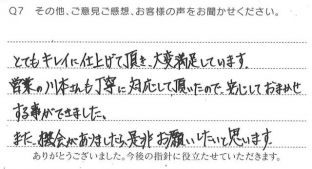 Q7 その他、ご意見ご感想、お客様の声をお聞かせください。
とてもキレイに仕上げて頂き、大変満足しています。
営業の川本さんも丁寧に対応して頂いたので、安心しておまかせ
する事ができました。
また、機会がありましたら是非お願いしたいと思います。
ありがとうございました。今後の指針に役立たせていただきます。